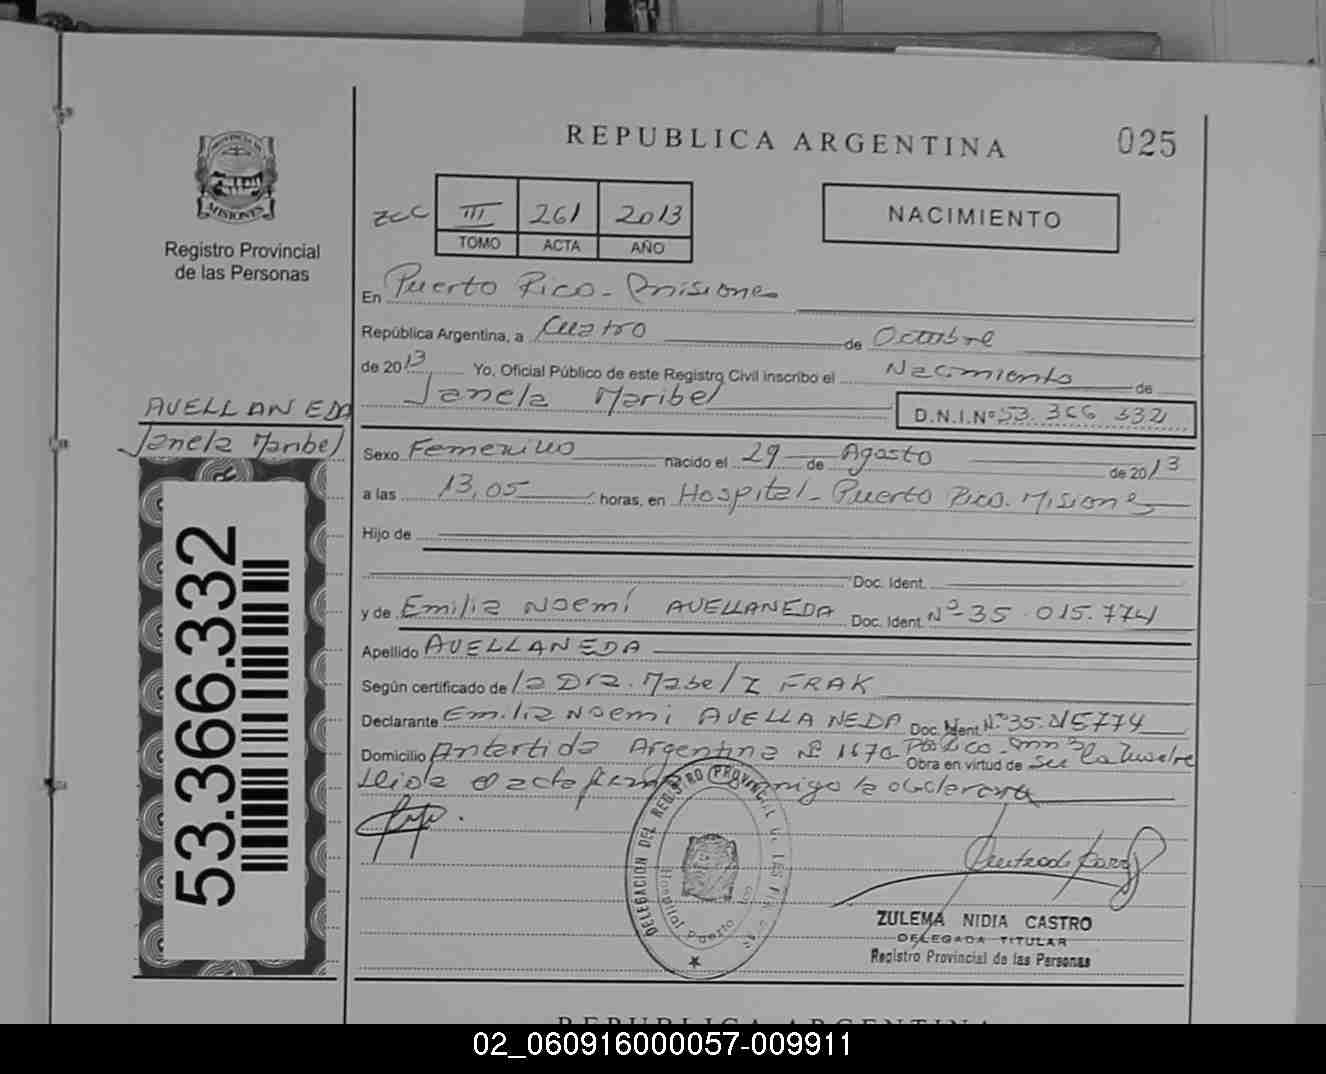 REPUBLICA ARGENTINA
025
PROVINCIA DE
MISIONES
Registro Provincial
de las Personas
zcc III 261 2013
TOMO ACTA AÑO
NACIMIENTO
En Puerto Rico - Misiones
República Argentina, a Cuatro de Octubre
de 2013 Yo, Oficial Público de este Registro Civil inscribo el Nacimiento de
Janela Maribel D.N.I.Nº 53.366 332
AVELLANEDA
Janela Maribel
53.366.332
Sexo Femenino nacido el 29 de Agosto de 2013
a las 13,05 horas, en Hospital - Puerto Rico. Misiones
Hijo de
Doc. Ident.
y de Emilia Noemí AVELLANEDA Doc. Ident. Nº 35.015.774
Apellido AVELLANEDA
Según certificado de la Dra. Mabel Z FRAK
Declarante Emilia Noemi AVELLANEDA Doc. Ident. Nº 35.015774
Domicilio Antartida Argentina Nº 1670 Obra en virtud de ser la madre
Leida el acta firma conmigo la declarante
DELEGACION DEL REGISTRO PROVINCIAL DE LAS
Hospital Puerto
ZULEMA NIDIA CASTRO
DELEGADA TITULAR
Registro Provincial de las Personas
REPUBLICA ARGENTINA
02_060916000057-009911